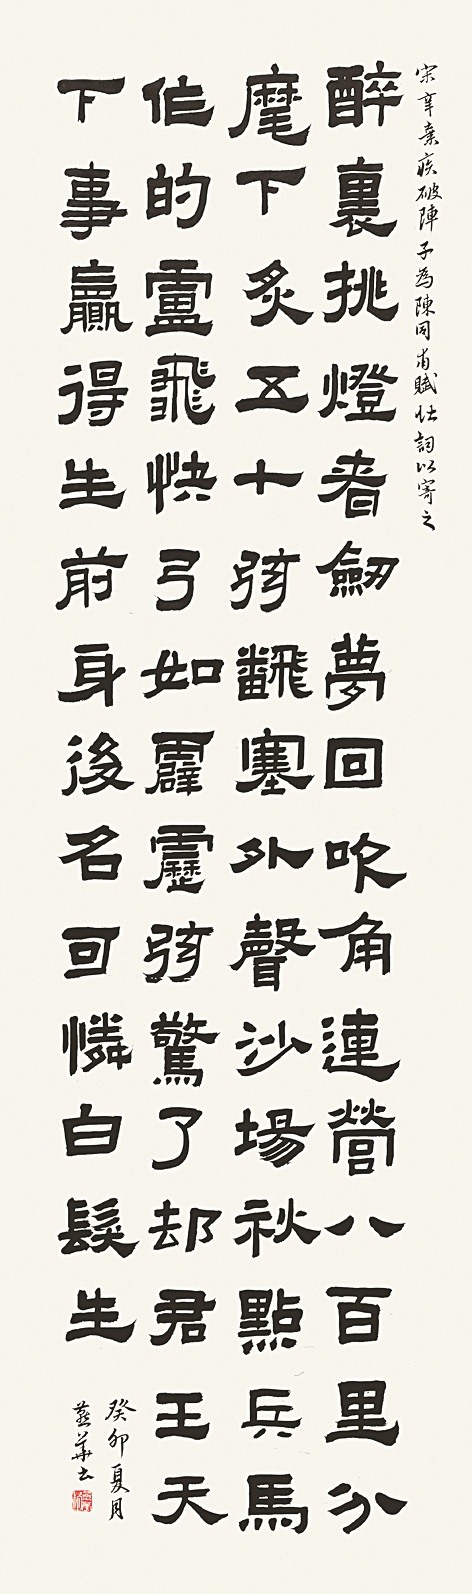 宋辛棄疾破陣子為陳同甫賦壯詞以寄之
醉裏挑燈看劒夢回吹角連營八百里分
麾下炙五十弦飜塞外聲沙場秋點兵馬
作的盧飛快弓如霹靂弦驚了却君王天
下事贏得生前身後名可憐白髮生
癸卯夏月
燕華书